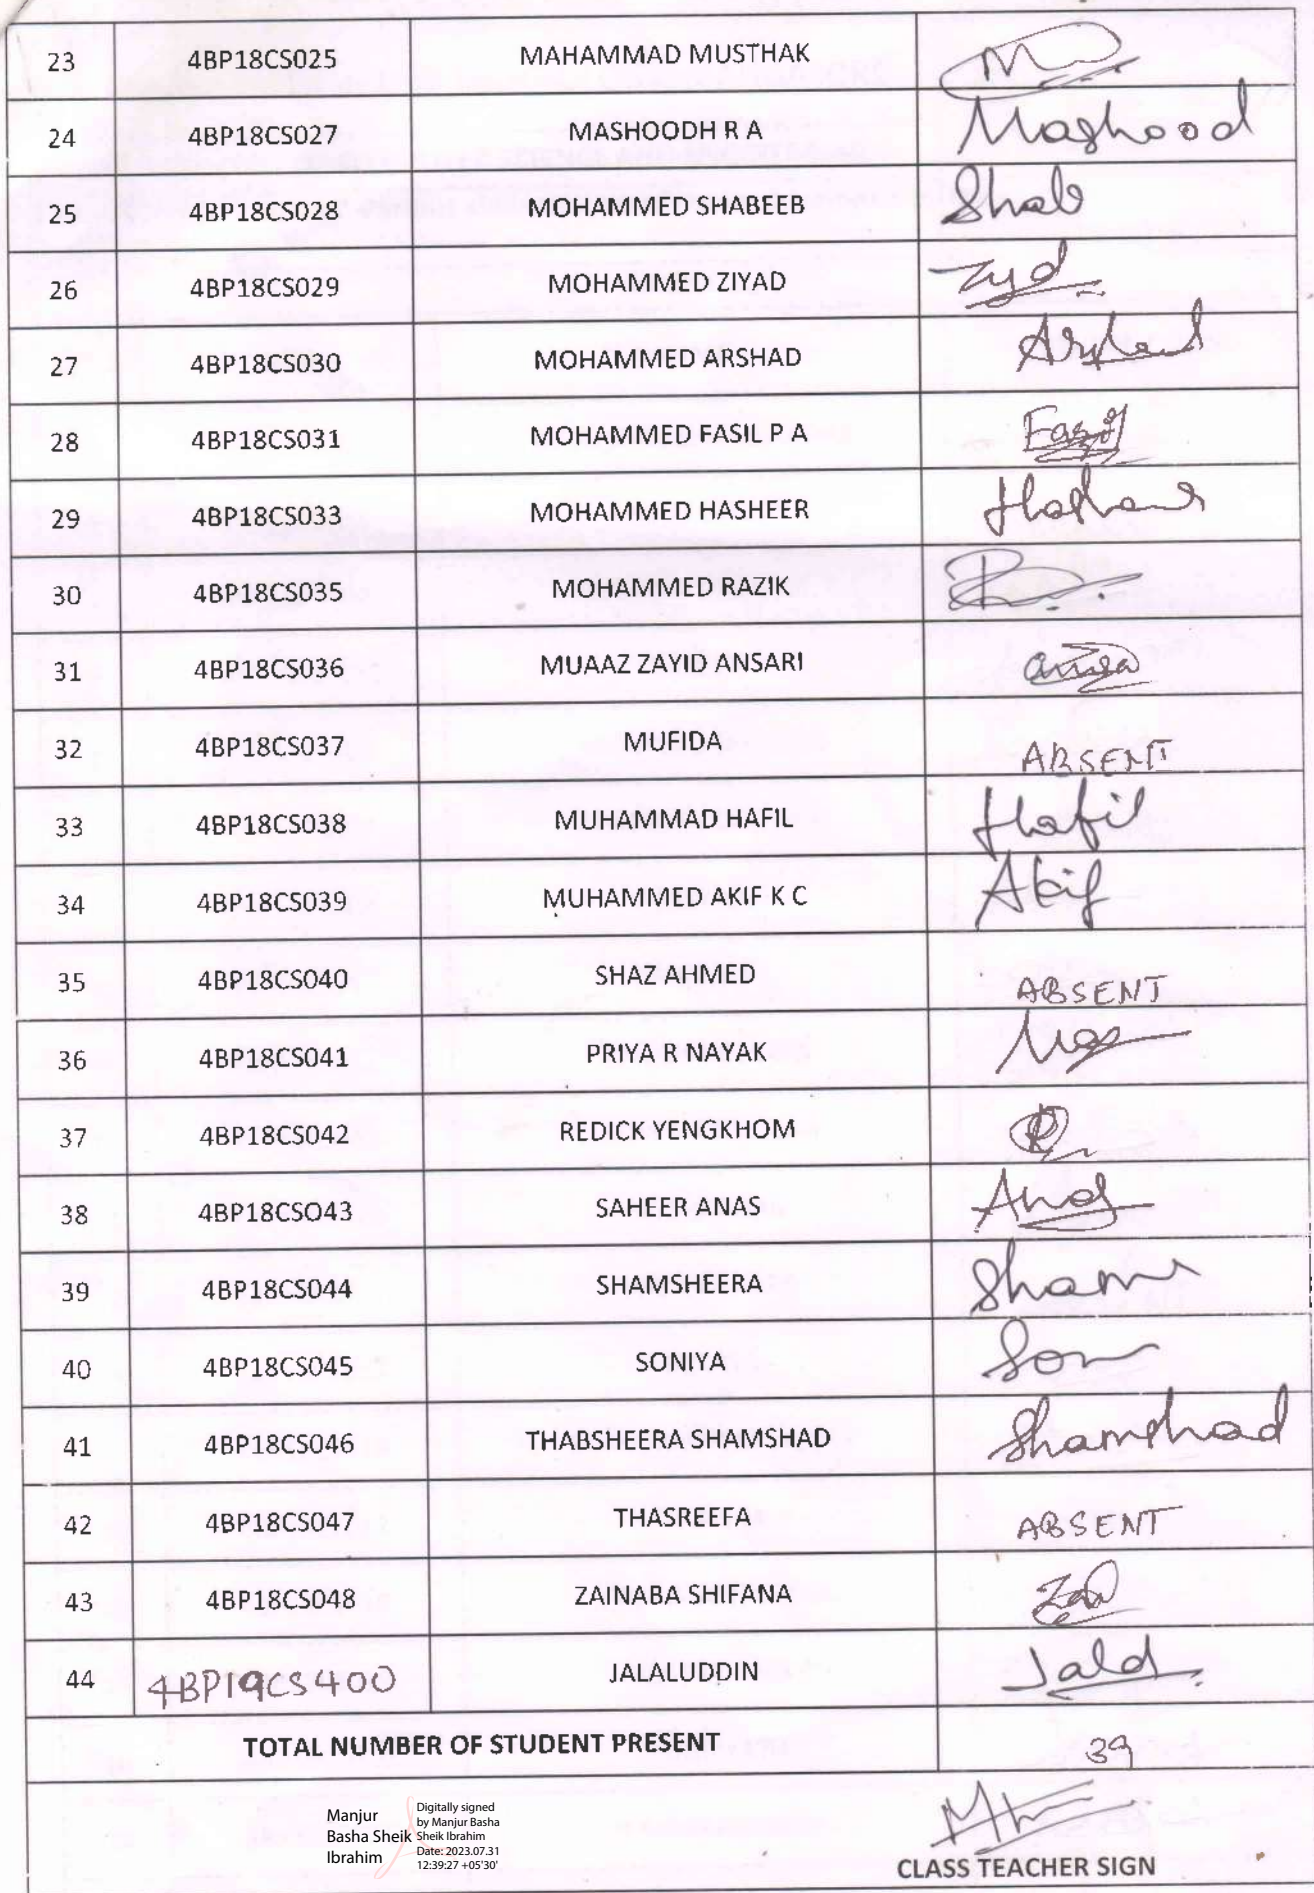 23 4BP18CS025 MAHAMMAD MUSTHAK M
24 4BP18CS027 MASHOODH R A Mashood
25 4BP18CS028 MOHAMMED SHABEEB Shab
26 4BP18CS029 MOHAMMED ZIYAD Zyd
27 4BP18CS030 MOHAMMED ARSHAD Arshad
28 4BP18CS031 MOHAMMED FASIL P A Fasil
29 4BP18CS033 MOHAMMED HASHEER
30 4BP18CS035 MOHAMMED RAZIK
31 4BP18CS036 MUAAZ ZAYID ANSARI
32 4BP18CS037 MUFIDA ABSENT
33 4BP18CS038 MUHAMMAD HAFIL Hafil
34 4BP18CS039 MUHAMMED AKIF K C Akif
35 4BP18CS040 SHAZ AHMED ABSENT
36 4BP18CS041 PRIYA R NAYAK
37 4BP18CS042 REDICK YENGKHOM
38 4BP18CSO43 SAHEER ANAS Anas
39 4BP18CS044 SHAMSHEERA Sham
40 4BP18CS045 SONIYA Son
41 4BP18CS046 THABSHEERA SHAMSHAD Shamshad
42 4BP18CS047 THASREEFA ABSENT
43 4BP18CS048 ZAINABA SHIFANA
44 4BP19CS400 JALALUDDIN Jald
TOTAL NUMBER OF STUDENT PRESENT 39
Manjur
Basha Sheik
Ibrahim
Digitally signed
by Manjur Basha
Sheik Ibrahim
Date: 2023.07.31
12:39:27 +05'30'
CLASS TEACHER SIGN